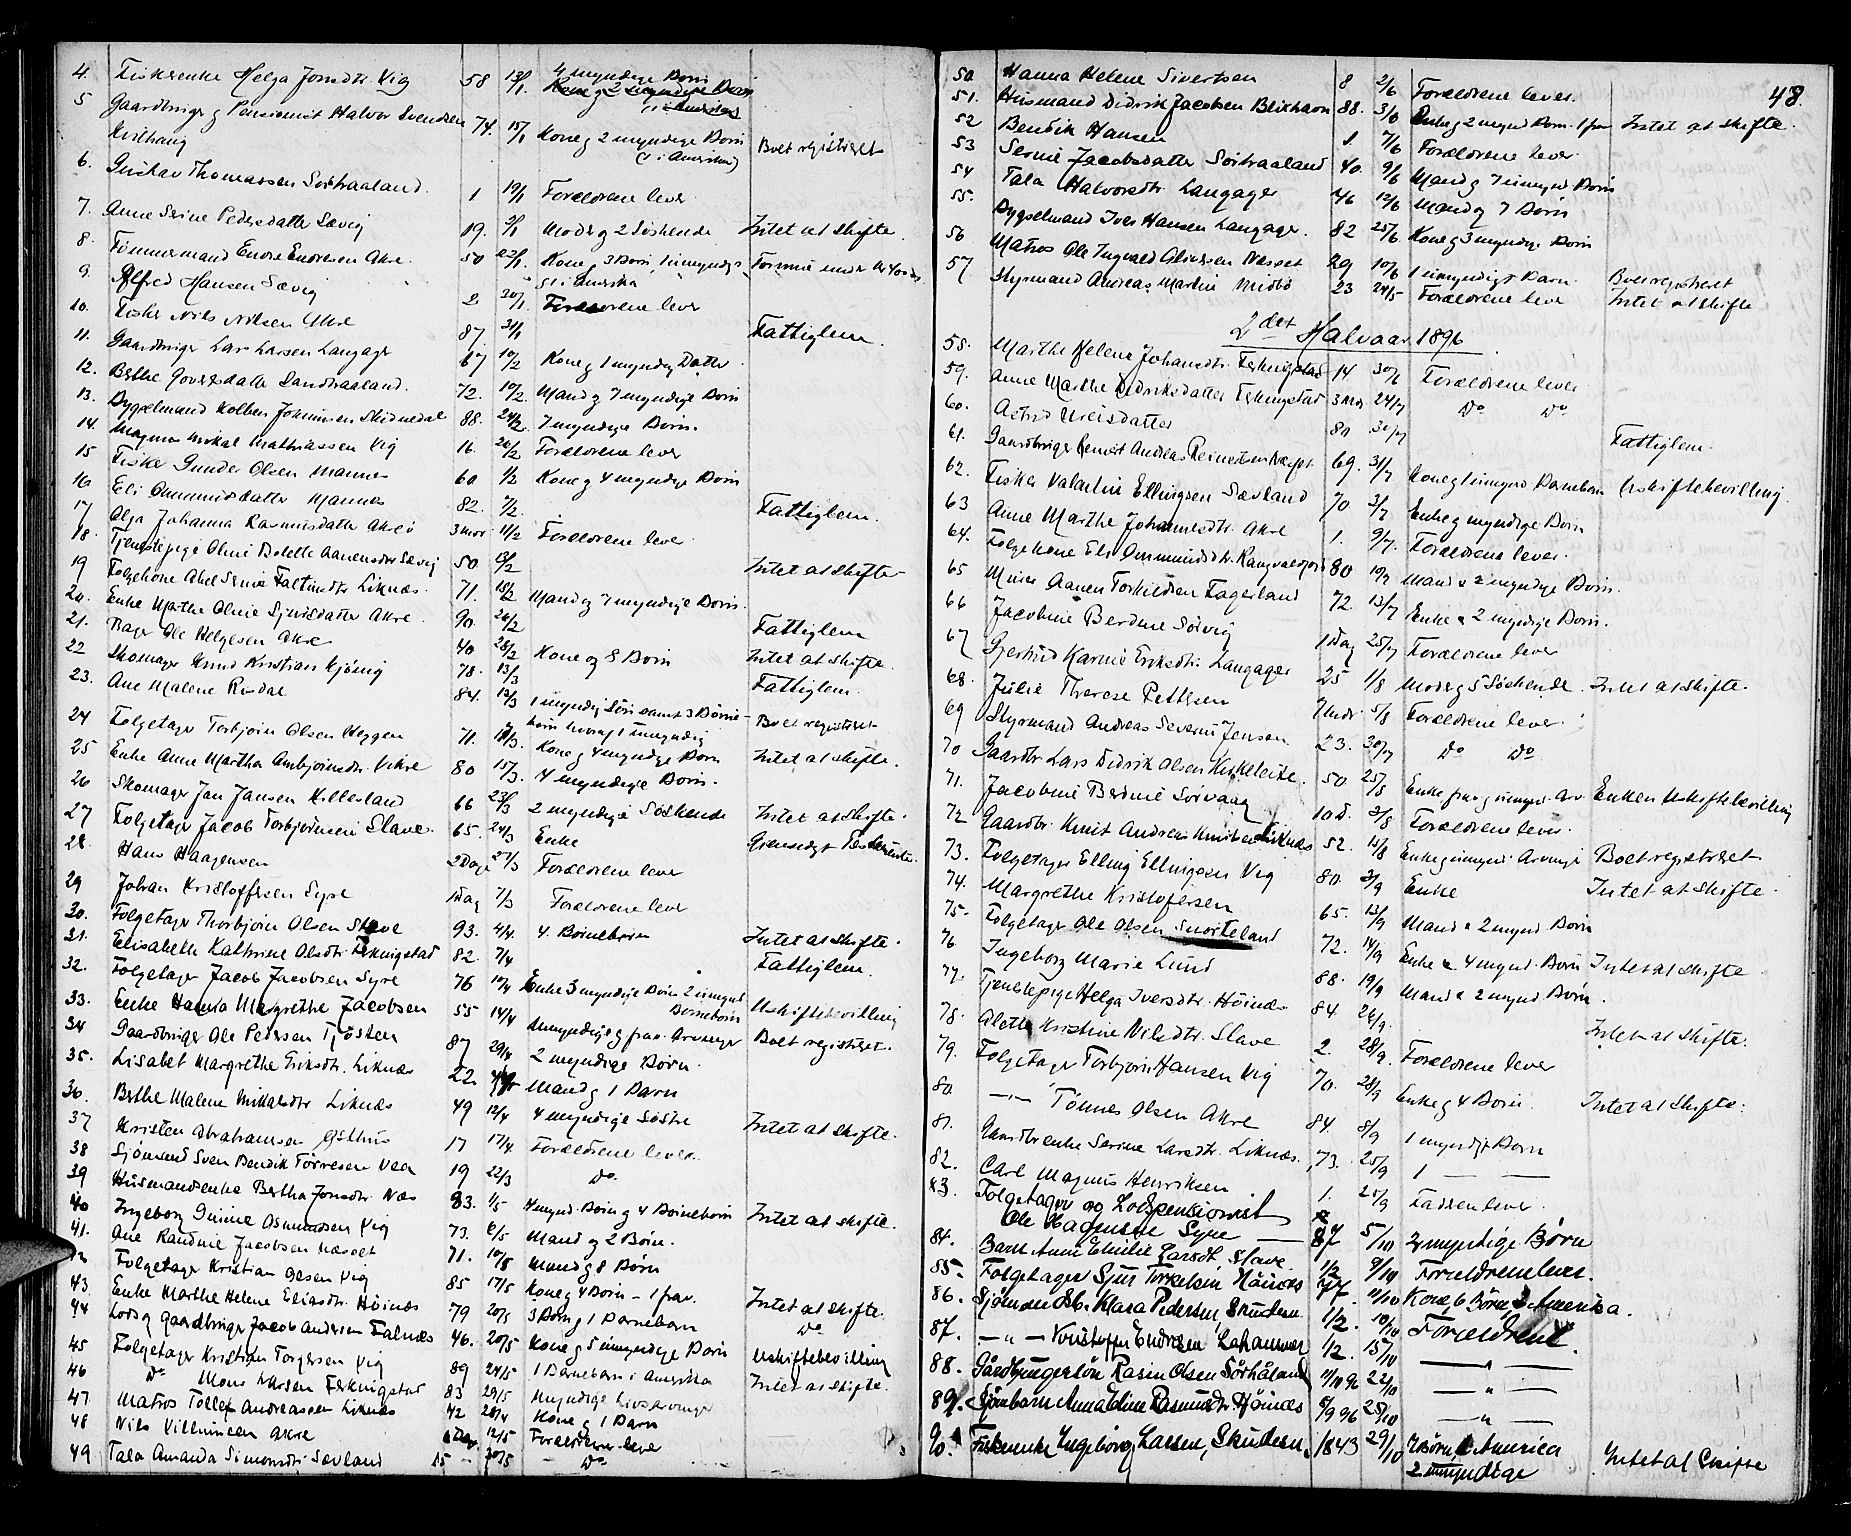 4. Fiskerenke Helga Jonsdtr. Vig 58 13/1 4 myndige Børn
5 Gaardbruger og Pensionist Halvor Svendsen
Kvilhaug 74. 15/1 Kone og 2 myndige Børn (1 i Amerika) Boet registreret
6. Gustav Thomassen Sørhaaland. 1 19/1 Forældrene lever
7. Anne Serine Pedersdatter Sævig 19. 2/1 Moder og 2 Søskende Intet at skifte.
8. Tømmermand Endre Endresen Akre. 50 23/1 Kone, 3 Børn, 1 umyndig
1 i Amerika
9. Alfred Hansen Sævig 2 20/1 Forældrene lever
10. Fisker Nils Nilsen Akre 87. 31/1 Fattiglem.
11. Gaardbruger Lars Larsen Langager 67 10/2 Kone og 1 myndig Datter
12. Berthe Govertsdatter Sandhaaland. 72. 10/2 Mand og 7 myndige Børn
13. Bygselmand Kolben Johannesen Skidnedal 88. 24/2 7 myndige Børn.
14. Magnus Mikal Mathiassen Vig 16. 26/2 Forældrene lever
15 Fisker Gunder Olsen Mannes 60 1/2 Kone og 4 myndige Børn
16 Eli Ommundsdatter Mannes 82. 7/2. Fattiglem.
17 Olga Johanna Rasmusdatter Akre 3 Mdr 11/2 Forældrene lever
18. Tjenestepige Oline Bolette Aanensdtr Sævig 50 13/2 Intet at skifte
19 Folgekone Abel Serine Faltinsdtr Liknæs. 71. 18/2 Mand og 7 myndige Børn.
20. Enke Marthe Oline Sjursdatter Akre. 90. 26/2 Fattiglem
21. Bager Ole Helgesen Akre 40 28/2 Kone og 8 Børn Intet at skifte.
22 Skomager Knud Kristian Gjønig 78. 13/3 Fattiglem.
23. Ane Malene Rosdal 84. 12/3 1 myndig Søn samt 3 Børne-
børn hvoraf 1 umyndig Boet registreret
24 Folgetager Torbjørn Olsen Heggen 71. 10/3. Kone og 4 myndige Børn Intet at skifte.
25 Enke Anne Martha Asbjørnsdtr. Vikre 80 15/3. 4 myndige Børn.
26 Skomager Jan Jansen Hillesland 66 23/3 2 myndige Søskende Intet at skifte.
27 Folgetager Jacob Torbjørnsen Slave. 65. 24/3 Enke Gjensidigt Testamente
28. Hans Haagensen 2 Dage 27/3 Forældrene lever
29 Johan Kristoffersen Syre 1 Dag 7/3 Forældrene lever
30. Folgetager Thorbjørn Olsen Slave 93. 4/4. 4. Børnebørn Intet at skifte.
31. Elisabeth Kathrine Olsdtr. Ferkingstad 82. 7/4 Fattiglem.
32. Folgetager Jacob Jacobsen Syre 76 10/4 Enke 3 myndige Børn 2 umynd
Børnebørn Uskiftebevilling
33. Enke Hanna Margrethe Jacobsen 55 14/4 umyndige og frav. Arvinger Boet registreret.
34 Gaardbruger Ole Pedersen Tjøsten 87 29/4 2 myndige Børn
35. Lisabet Margrethe Eriksdtr. Liknæs 22. Mand og 1 Barn
36. Berthe Malene Mikkelsdtr Liknæs 49 12/4 4 myndige Søstre
37 Kristen Abrahamsen Gofthus 17 17/4. Forældrene lever. Intet at skifte.
38 Sjømand Sven Bendik Tørresen Vea 19 22/3 Do.
39 Husmandsenke Bertha Jonsdtr Næs 83. 1/5 4 mynd. Børn og 4 Børnebørn Intet at skifte.
40 Ingeborg Gurine Asmundsen Vig 73. 6/5 Mand og 2 Børn.
41. Ane Randine Jacobsen Næsset 71. 10/5 Mand og 8 Børn
42 Folgetager Kristian Olsen Vig 85 17/5 Kone og 4 Børn - 1 frav. Intet at skifte.
43. Enke Marthe Helene Eliasdtr. Høinæs 79 20/5 3 Børn og 1 Børnebarn Do
44 Lods og Gaardbruger Jacob Andersen Falnæs 46. 20/5 Kone og 5 umyndige Børn Uskiftebevilling
45 Folgetager Kristian Torgersen Vig 89 24/5 1 Børnebarn i Amerika Intet at skifte.
46 Do Mons Larsen Ferkingstad 83 29/5 Myndige Livsarvinger
47 Matros Tollef Andreassen Liknæs 42 28/4 Kone og 1 Barn
48 Nils Villumsen Akre 6 Dage 12/5 Forældrene lever
49 Tala Amanda Simonsdtr Sævland 20/5 - Do
48.
50. Hanna Helene Sivertsen 8 2/6 Forældrene lever.
51. Husmand Didrik Jacobsen Blikhavn 88. 3/6 Enke og 2 mynd Børn. 1 frav Intet at skifte.
52 Bendik Hansen 1. 7/6 Forældrene lever.
53 Serine Jacobsdatter Sørhaaland 40. 9/6 Mand og 7 umynd Børn
54 Tala Halvorsdtr Langager 46 12/6 Mand og 7 Børn
55. Bygselmand Iver Hansen Langager. 82 25/6 Kone og 3 myndige Børn
56 Matros Ole Ingvald Olausen Næsset 29 10/6 1 umyndigt Barn. Boet registreret
57 Styrmand Andreas Martin Midbø 23 24/5 Forældrene lever Intet at skifte
2det Halvaar 1896
58. Marthe Helene Johansdtr. Ferkingstad 14 30/6 Forældrene lever
59. Anne Marthe Didriksdatter Ferkingstad 3 Mdr 24/7 Do Do
60. Astrid Ureisdatter 80 30/7 Fattiglem.
61. Gaardbruger Bendit Andreas Reinertsen Næsset 69. 31/7 Kone og 1 umynd Børnebarn Uskiftebevilling.
62. Fisker Valentin Ellingsen Sævland 70 3/7 Enke og myndige Børn
63 Anne Marthe Johannesdtr. Akre 1. 9/7. Forældrene lever.
64. Folgekone Eli Ommundsdtr. Rangvaldsjord 80 19/7 Mand & 2 myndige Børn.
65 Murer Aanen Torkildsen Fagerland 72. 13/7 Enke & 2 myndige Børn.
66 Jacobine Berdine Sørvig 1 Dag 25/7 Forældrene lever
67 Gjertrud Karine Eriksdtr. Langager 25 1/8 Moder og 5 Søskende. Intet at skifte.
68. Julie Therese Pettersen 7 Mdr. 5/8 Forældrene lever.
69 Styrmand Andreas Severin Jensen 23. 30/7 Do Do.
70 Gaardbr Lars Didrik Olsen Kirkeleite. 50. 25/8 Enke frav. og umynd. Arv. Enken Uskiftebevilling
71. Jacobine Berdine Sørvaag 10 d. 3/8 Forældrene lever.
72. Gaardbr. Knut Andreas Knutsen Liknæs 52. 15/8 Enke og umynd. Arvinge Boet registreret
73. Folgetager Elling Ellingsen Vig 80. 3/9 Enke Intet at skifte.
74. Margrethe Kristofersen 65. 13/9 Mand & 2 mynd Børn
75. Folgetager Ole Olsen Snorteland 72. 14/9 Enke & 4 mynd. Børn Intet at skifte.
76 Ingeborg Marie Lund 88. 19/9 Mand & 2 mynd Børn.
77. Tjenestepige Helga Iversdtr. Høinæs 84. 24/9. Intet at skifte.
78. Alette Kristine Nilsdtr. Slave 2. 28/9. Forældrene lever
79. Folgetager Torbjørn Hansen Vig 70. 28/9 Enke og 4 Børn. Intet at skifte.
80. —"— Tønnes Olsen Akre 84. 8/9 1 myndigt Barn
81. Gaardbrenke Serine Larsdtr. Liknæs. 73. 25/9 1 — —
82. Carl Magnus Henriksen 1. 25/9 Faderen lever.
83. Folgetager og Lodspensionist
Ole Haagensen Syre — 87 5/10 2 myndige Børn
84. Barn Anne Emilie Larsdt. Slave. 1/2 9/10 Forældrene lever.
85. Folgetager Sjur Torkelsen Høinæs 77. 11/10 Kone, 6 Børn 3 i Amerika.
86. Sjømands b. Klara Pedersen, Skudesn. 1/2. 10/10 Forældrene.
87. —"— Kristoffer Endresen Lahammer 1/2. 15/10 —"—
88. Gårdbrugersøn Rasin Olsen Sørhåland 11/10 96 22/10 —"—
89. Sjømbarn Amaldine Rasmusdtr. Høinæs 5/9 96 25/10 —"—
90. Fiskerenke Ingeborg Larsen, Skudesn. 1843 29/10 7 Børn i America
2 umyndige Intet at skifte